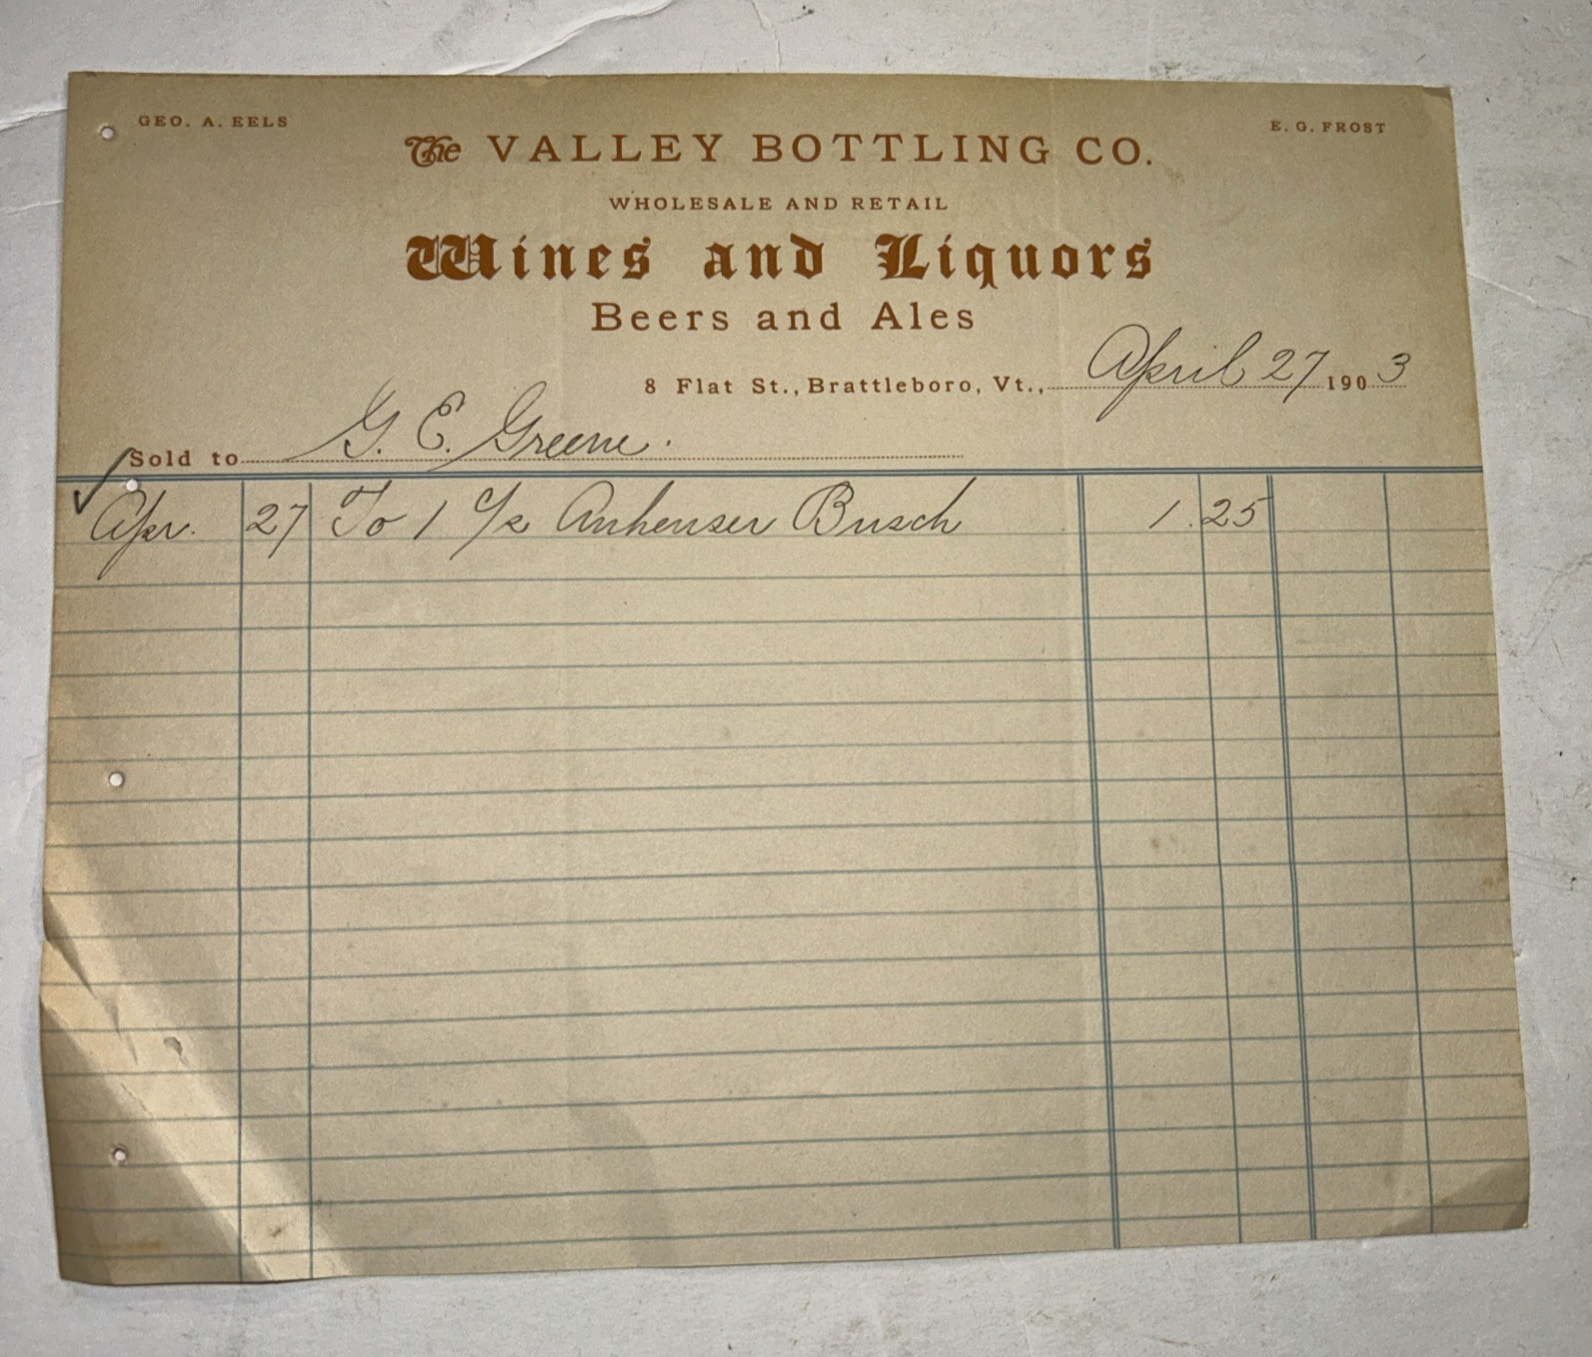 GEO. A. EELS
E. G. FROST
The VALLEY BOTTLING CO.
WHOLESALE AND RETAIL
Wines and Liquors
Beers and Ales
8 Flat St., Brattleboro, Vt., April 27 1903
Sold to G. E. Greene.
Apr. 27 To 1 c/s Anheuser Busch 1.25